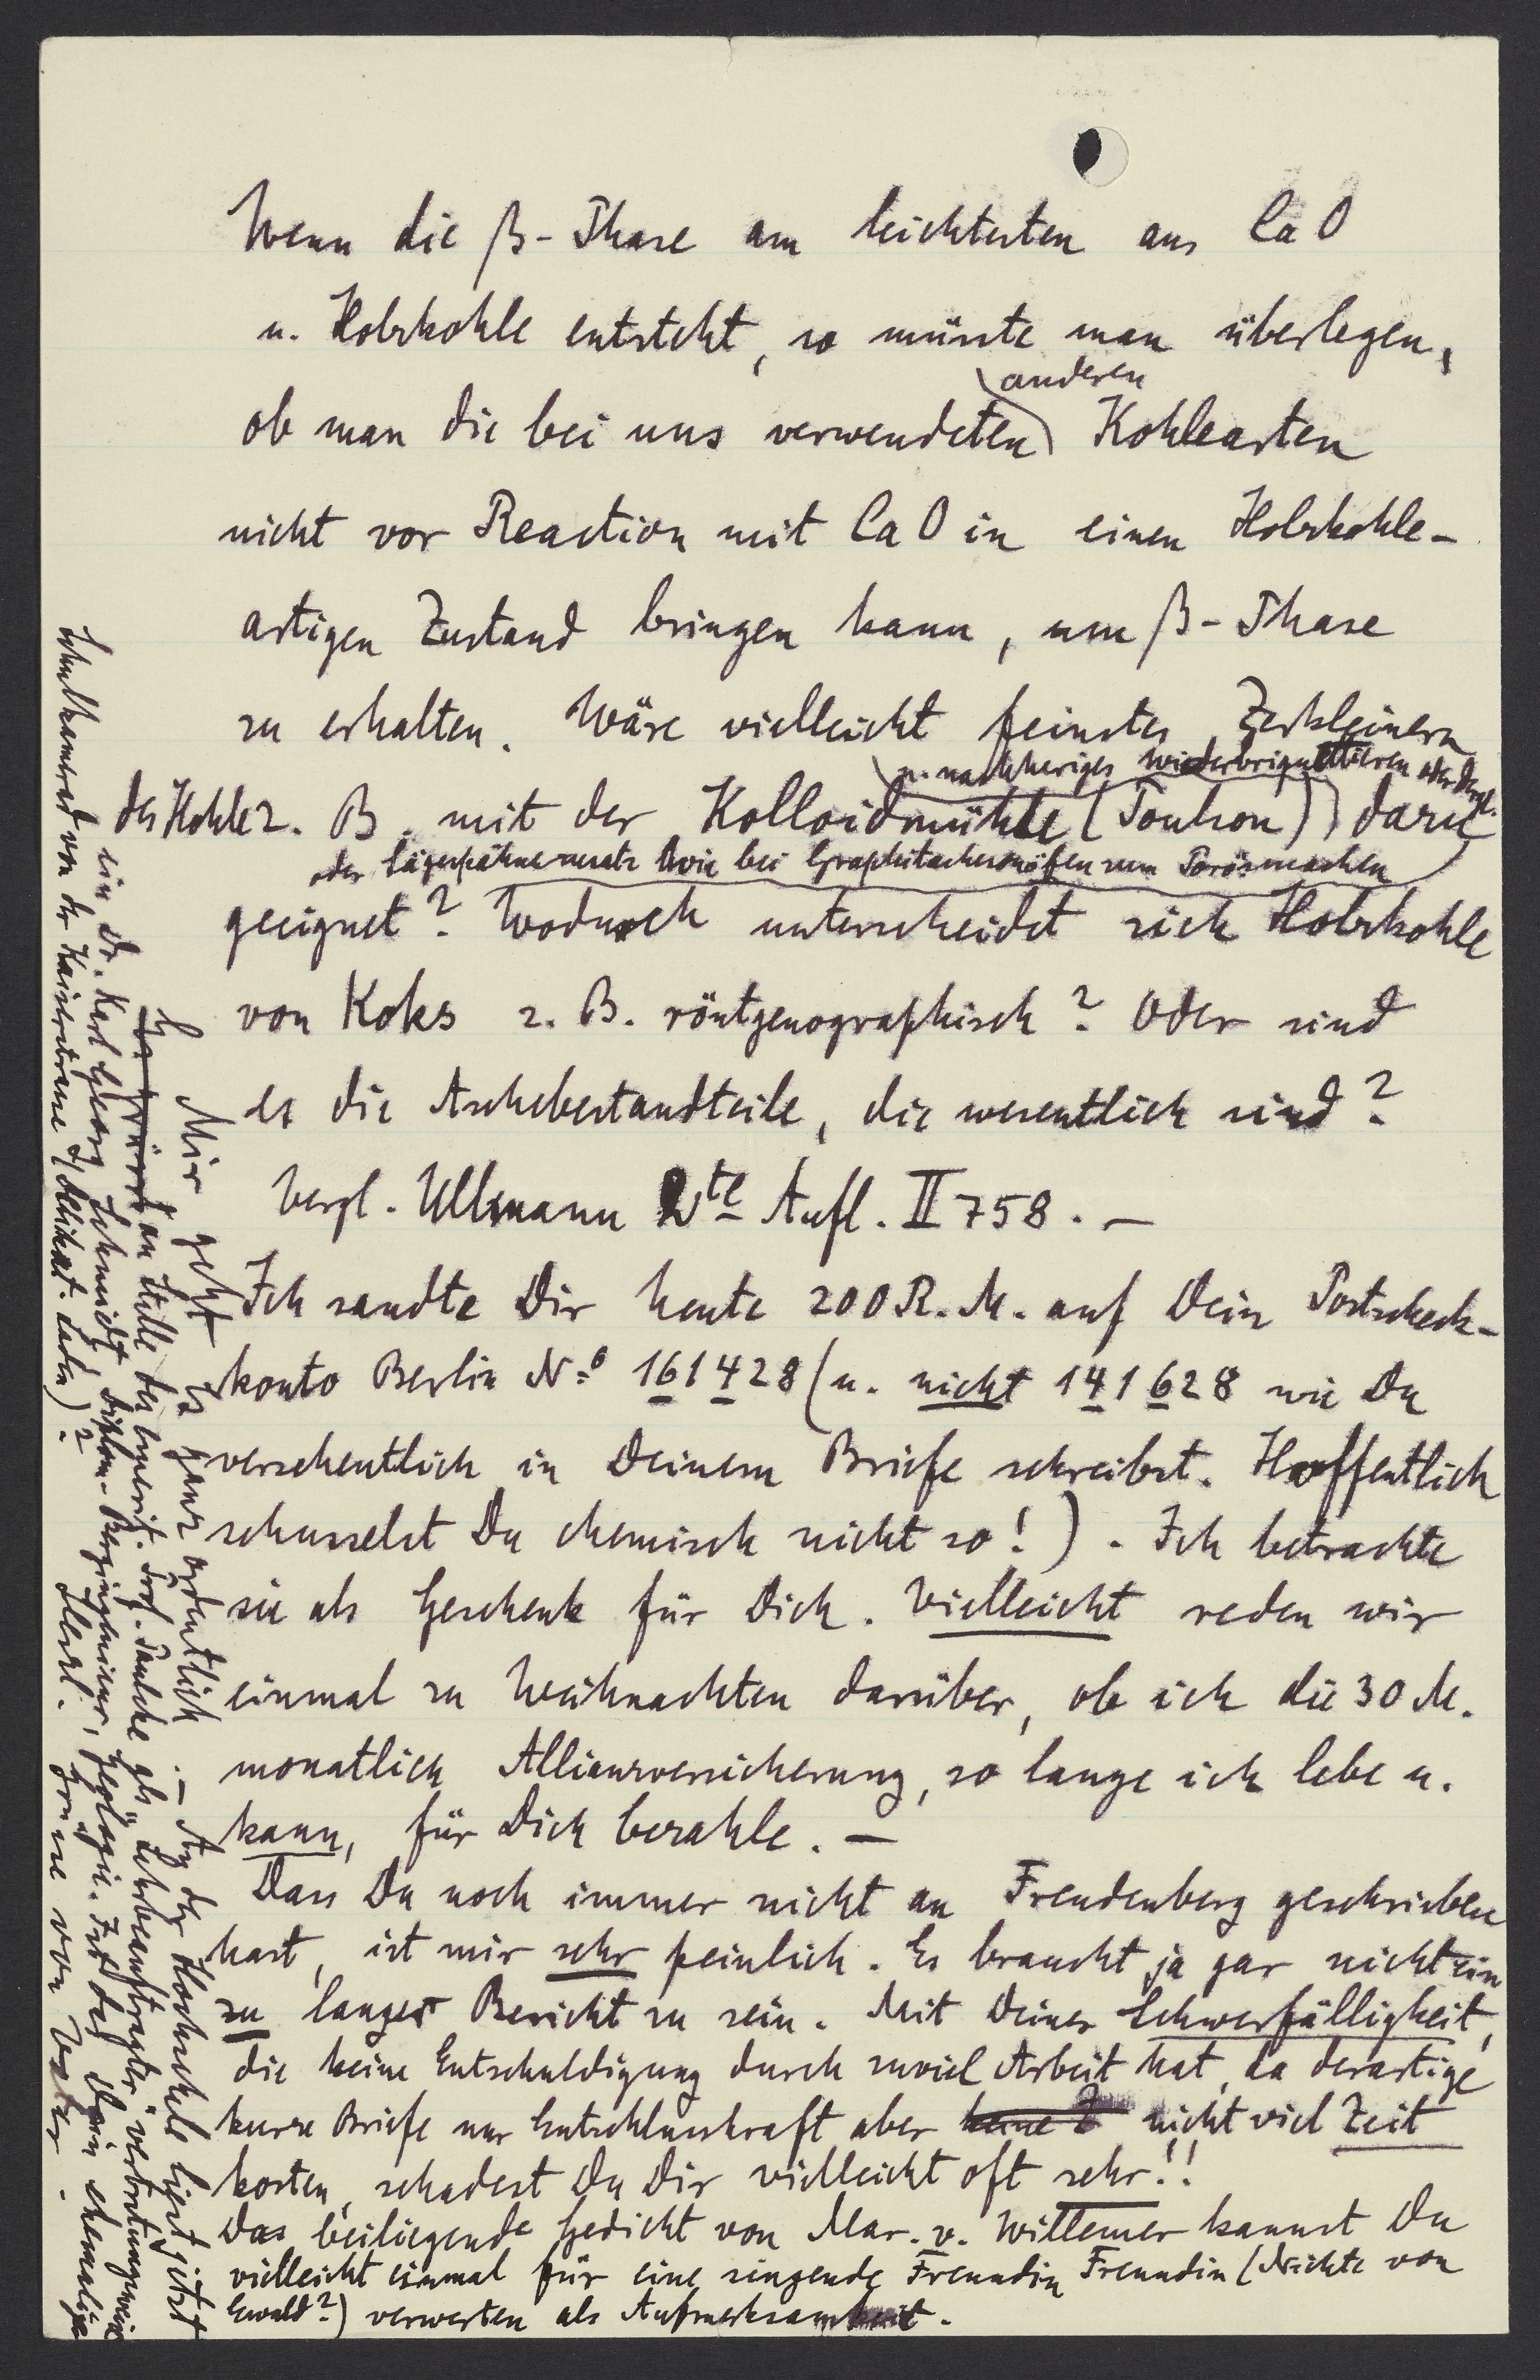 Wenn die β-Phase am leichtesten aus CaO
u. Holzkohle entsteht, so müsste man überlegen,
anderen
ob man die bei uns verwendeten Kohlearten
nicht vor Reaction mit CaO in einen Holzkohle-
artigen Zustand bringen kann, um β-Phase
zu erhalten. Wäre vielleicht feinstes Zerkleinern
u. nachheriges Wiederbriquettieren oder dergl.
der Kohle z. B. mit der Kolloidmühle (Toulson) dazu
oder Sägespähnezusatz wie bei zum Porösmachen
geeignet? Wodurch unterscheidet sich Holzkohle
von Koks z. B. röntgenographisch? Oder sind
es die Aschebestandteile, die wesentlich sind?
Vergl. Ullmann 2te Aufl. II 758. —
Ich sandte Dir heute 200 R. M. auf Dein Postscheck-
konto Berlin No 161428 (u. nicht 141628 wie Du
versehentlich in Deinem Briefe schreibst. Hoffentlich
schusselst Du chemisch nicht so!). Ich betrachte
sie als Geschenk für Dich. Vielleicht reden wir
einmal zu Weihnachten darüber, ob ich die 30 M.
monatlich Allianzversicherung, so lange ich lebe u.
kann, für Dich bezahle. —
Dass Du noch immer nicht an Freudenberg geschrieben
hast, ist mir sehr peinlich. Es braucht ja gar nicht ein
zu langer Bericht zu sein. Mit Deiner Schwerfälligkeit,
die keine Entschuldigung durch zuviel Arbeit hat, da derartige
kurze Briefe nur Entschlusskraft aber keine Z nicht viel Zeit
kosten, schadest Du Dir vielleicht oft sehr!!
Das beiliegende Gedicht von Mar. v. Willemer kannst Du
vielleicht einmal für eine singende Freundin Freundin (Nichte von
Ewald?) verwerten als Aufmerksamkeit.
Mir geht es ganz ordentlich. — An der Hochschule liest jetzt
an Stelle des emerit. Prof. Paulcke als Lehrbeauftragter vertretungsweise
ein Dr. Karl Georg Schmidt, Diplom-Bergingenieur, Geologie. Ist das Dein ehemaliger
Schulkamerad von der Kaiserstrasse)?
Herzl. Grüsse von Vater.